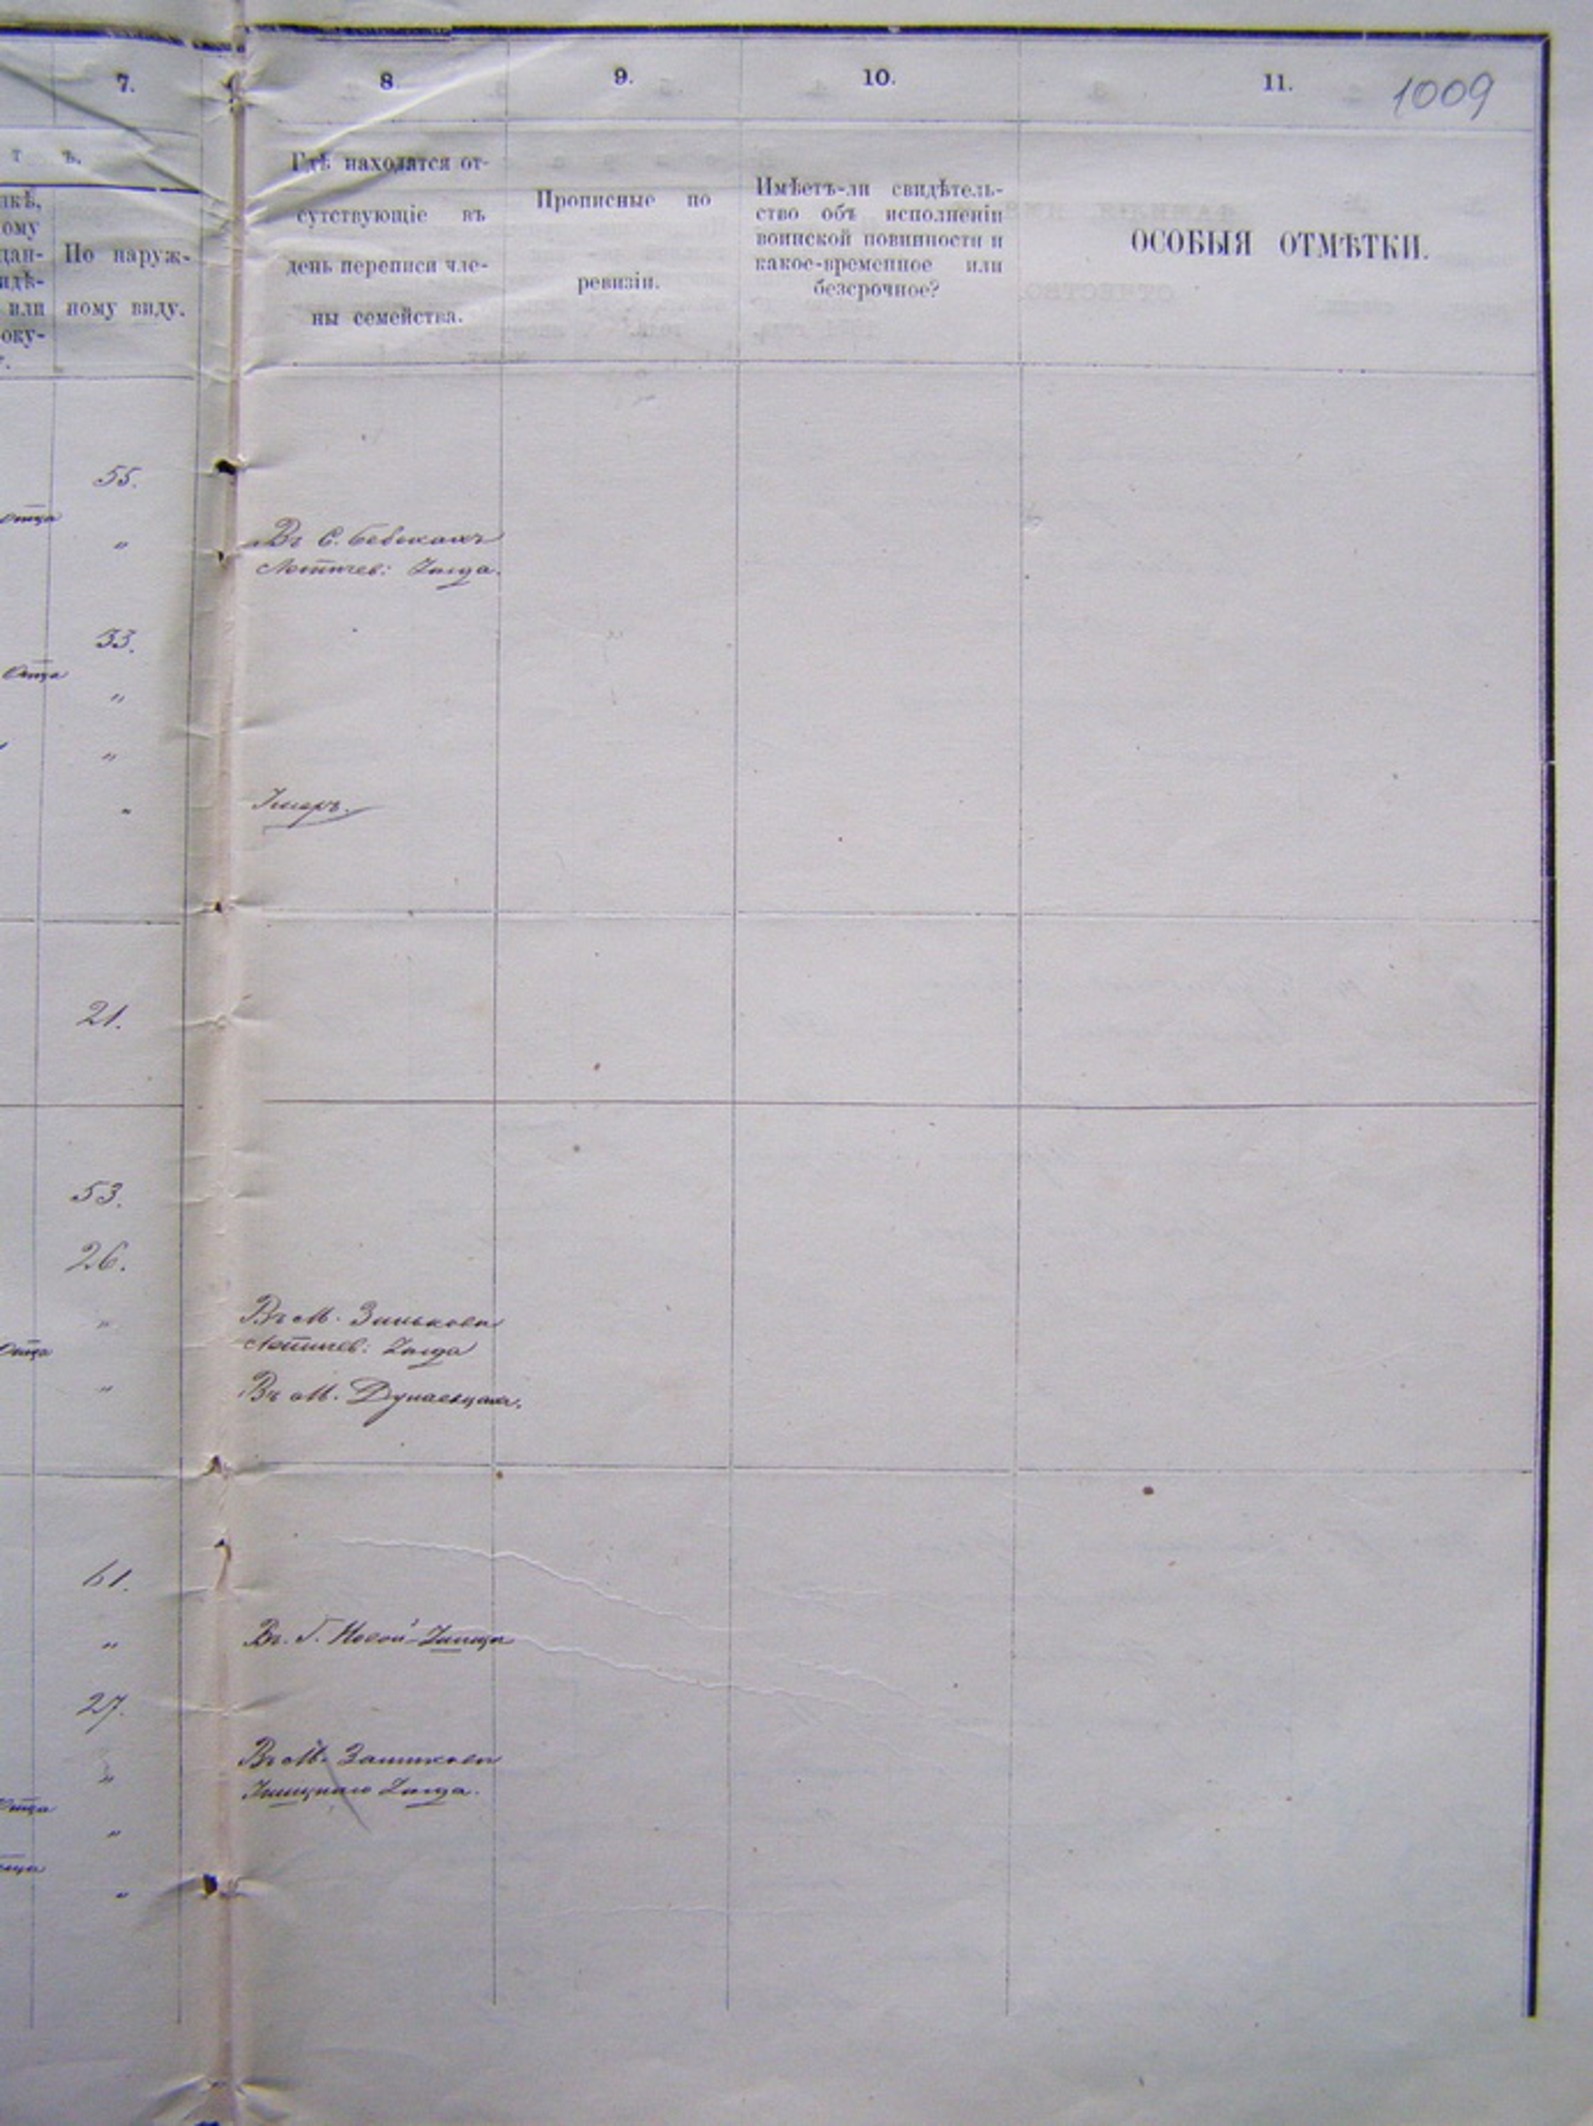 7.
8
9.
10.
11.
1009
т ъ.
лкѣ,
ому
дан-
идѣ-
или
оку-
По наруж-
ному виду.
Гдѣ находятся от-
сутствующіе въ
день переписи чле-
ны семейства.
Прописные по
ревизіи.
Имѣетъ-ли свидѣтель-
ство объ исполненіи
воинской повинности и
какое-временное или
безсрочное?
ОСОБЫЯ ОТМѢТКИ.
55.
отца
"
Въ С.
Летичев: Уѣзда.
33.
Отца
"
"
"
Умеръ.
21.
53.
26.
"
Въ М. Зиньковѣ
Летичев: Уѣзда
Отца
"
Въ М. Дунаевцахъ.
61.
"
Въ. Г. Новой-Ушицѣ
27.
"
Въ М.
Ушицкаго Уѣзда.
Отца
"
отца
"